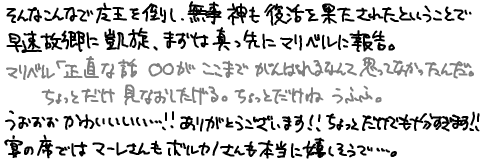 そんなこんなで魔王を倒し、無事 神も復活を果たされたということで
早速故郷に凱旋、まずは真っ先にマリベルに報告。
マリベル「正直な話 〇〇が ここまで がんばれるなんて 思ってなかったんだ。
ちょっとだけ 見なおしたげる。ちょっとだけね うふふ。
うおおおかわいいいい…!! ありがとうございます!! ちょっとだけでも十分すぎます!!
宴の席ではマーレさんもボルカノさんも本当に嬉しそうで…。